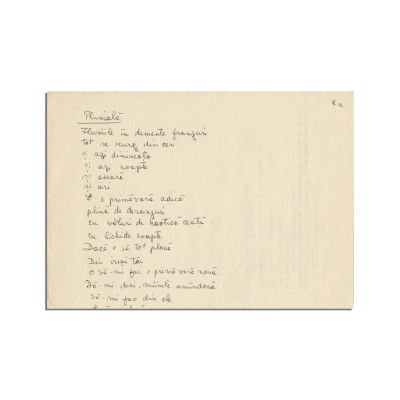 8a
Pluvială
Pluviile în demente franjuri
tot se scurg din cer
și azi dimineață
și azi noapte
și aseară
și ieri
E o primăvară adică
plină de deranjuri
cu văluri de haotică ceață
cu lichide șoapte
Dacă o să tot plouă
Din
O să-mi fac o primăvară nouă
Dă-mi deci, mâinile amândouă
Să-mi fac din ele